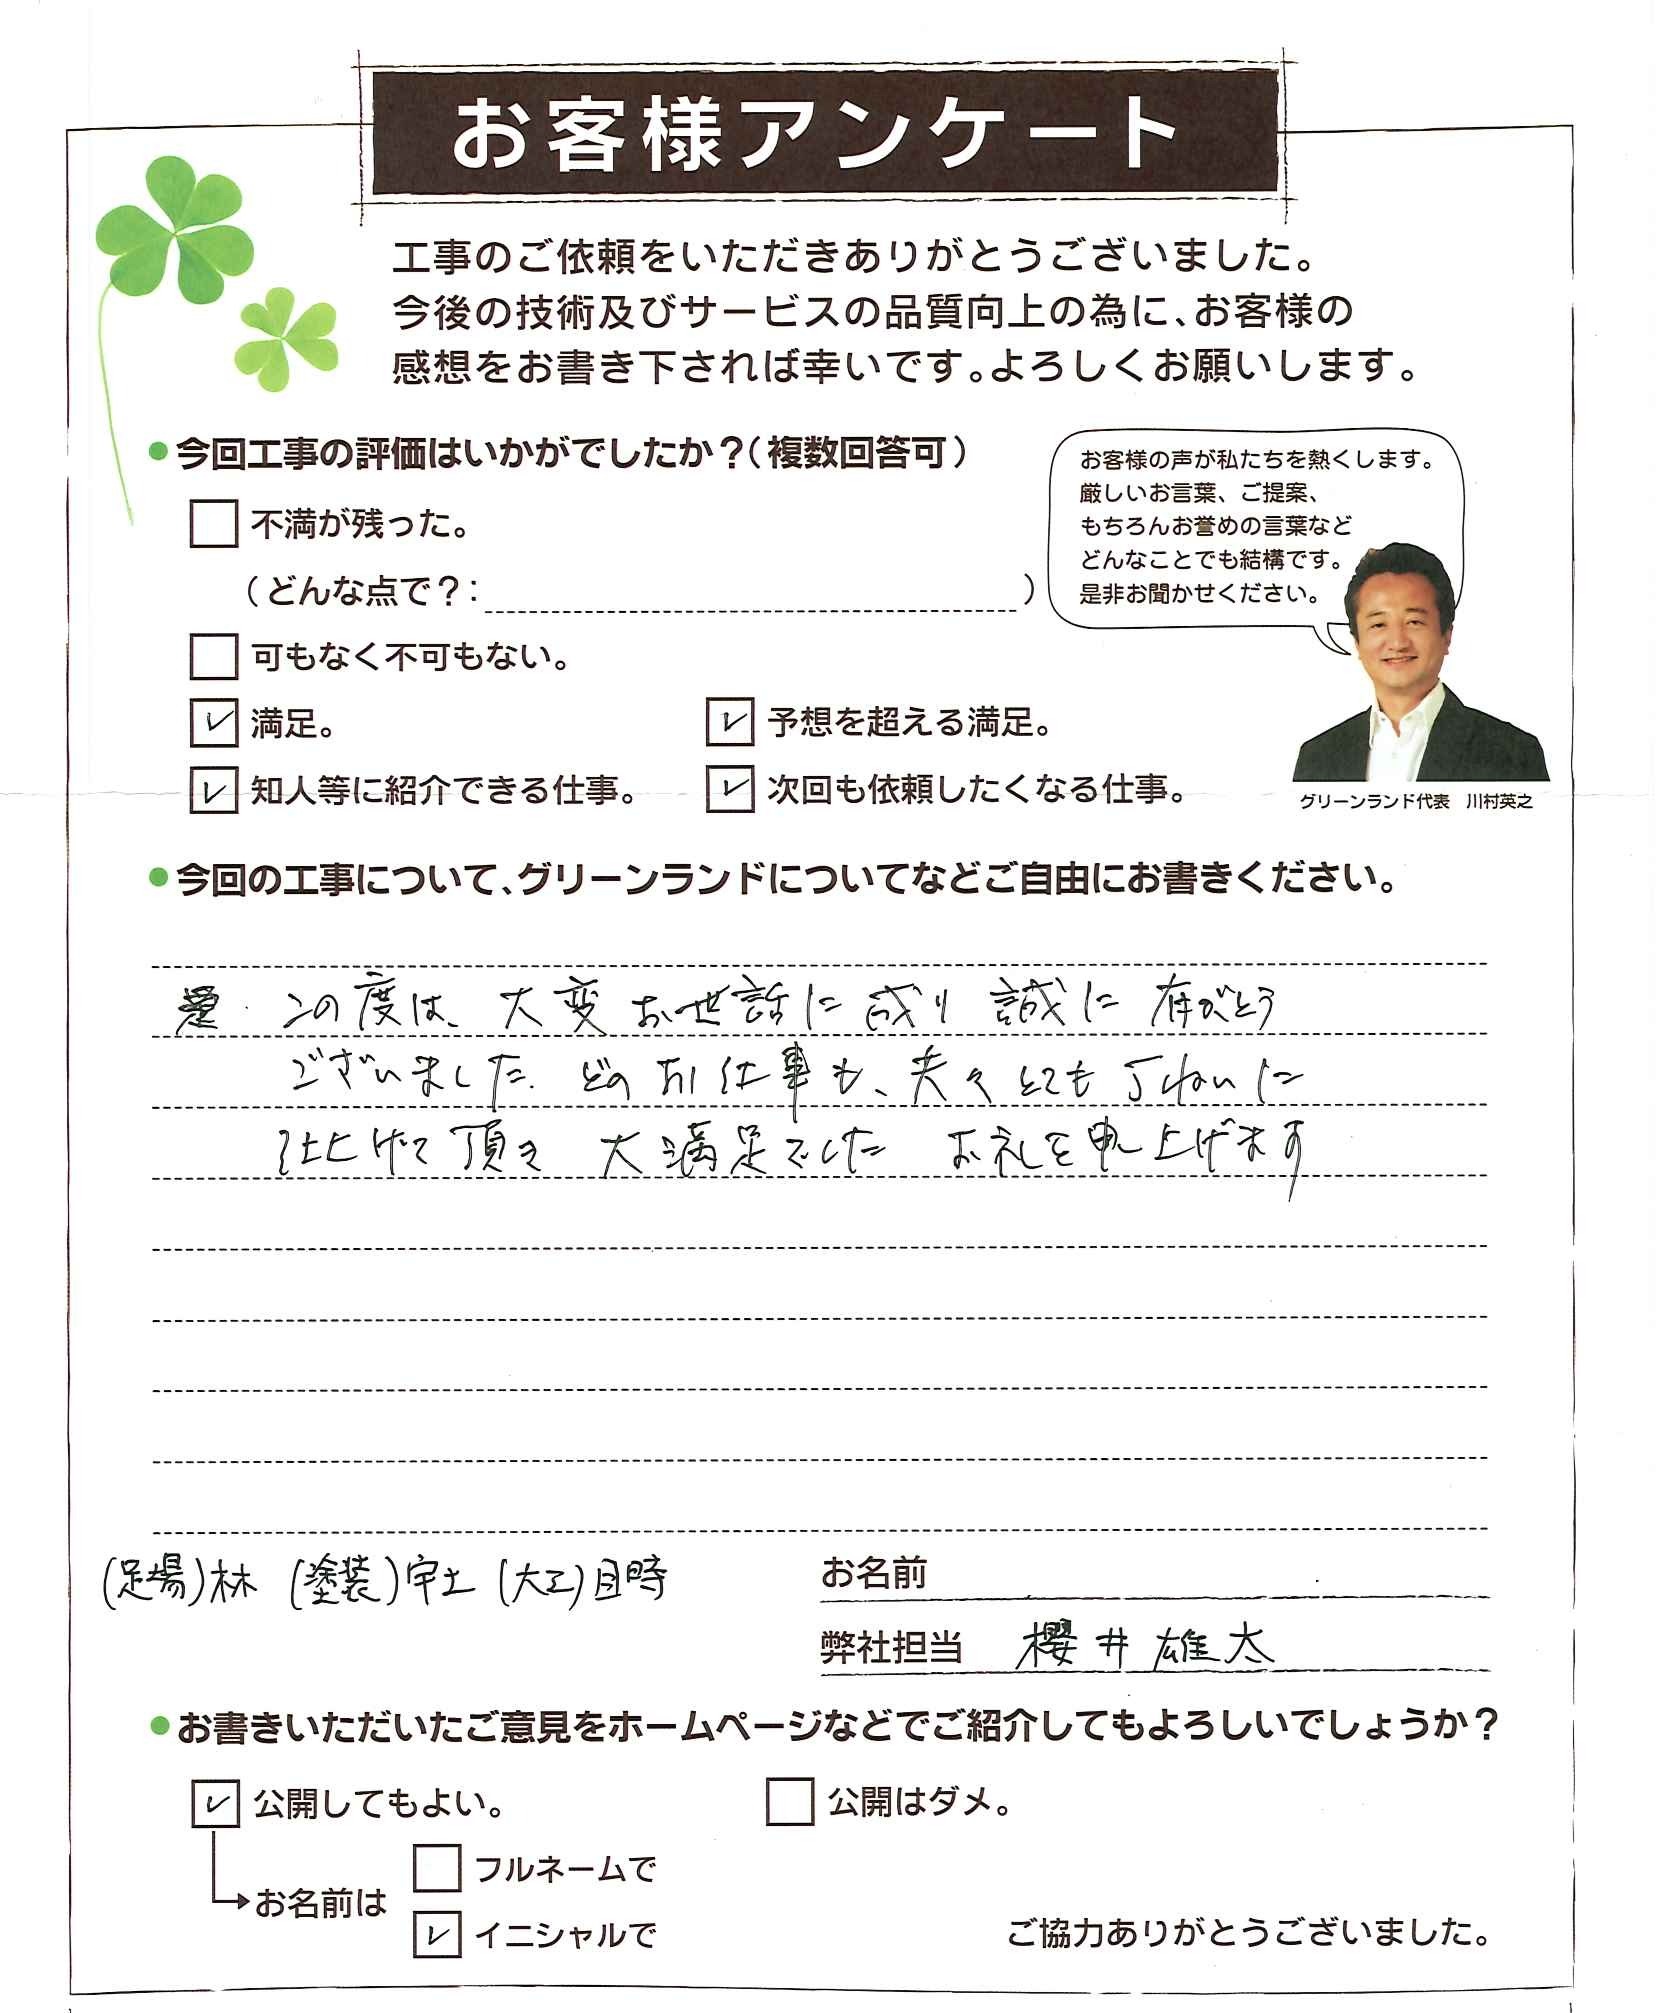 お客様アンケート
工事のご依頼をいただきありがとうございました。
今後の技術及びサービスの品質向上の為に、お客様の
感想をお書き下されば幸いです。よろしくお願いします。
●今回工事の評価はいかがでしたか？（複数回答可）
お客様の声が私たちを熱くします。
厳しいお言葉、ご提案、
もちろんお誉めの言葉など
どんなことでも結構です。
是非お聞かせください。
不満が残った。
（どんな点で？： ）
可もなく不可もない。
満足。 予想を超える満足。
知人等に紹介できる仕事。 次回も依頼したくなる仕事。
グリーンランド代表 川村英之
●今回の工事について、グリーンランドについてなどご自由にお書きください。
この度は、大変お世話に成り 誠に有がとう
ございました。どのお仕事も、夫々とても丁ねいに
仕上げて頂き 大満足でした お礼を申し上げます
(足場)林 (塗装)宇土 (大工)目時
お名前
弊社担当 櫻井雄太
●お書きいただいたご意見をホームページなどでご紹介してもよろしいでしょうか？
公開してもよい。 公開はダメ。
お名前は
フルネームで
イニシャルで
ご協力ありがとうございました。